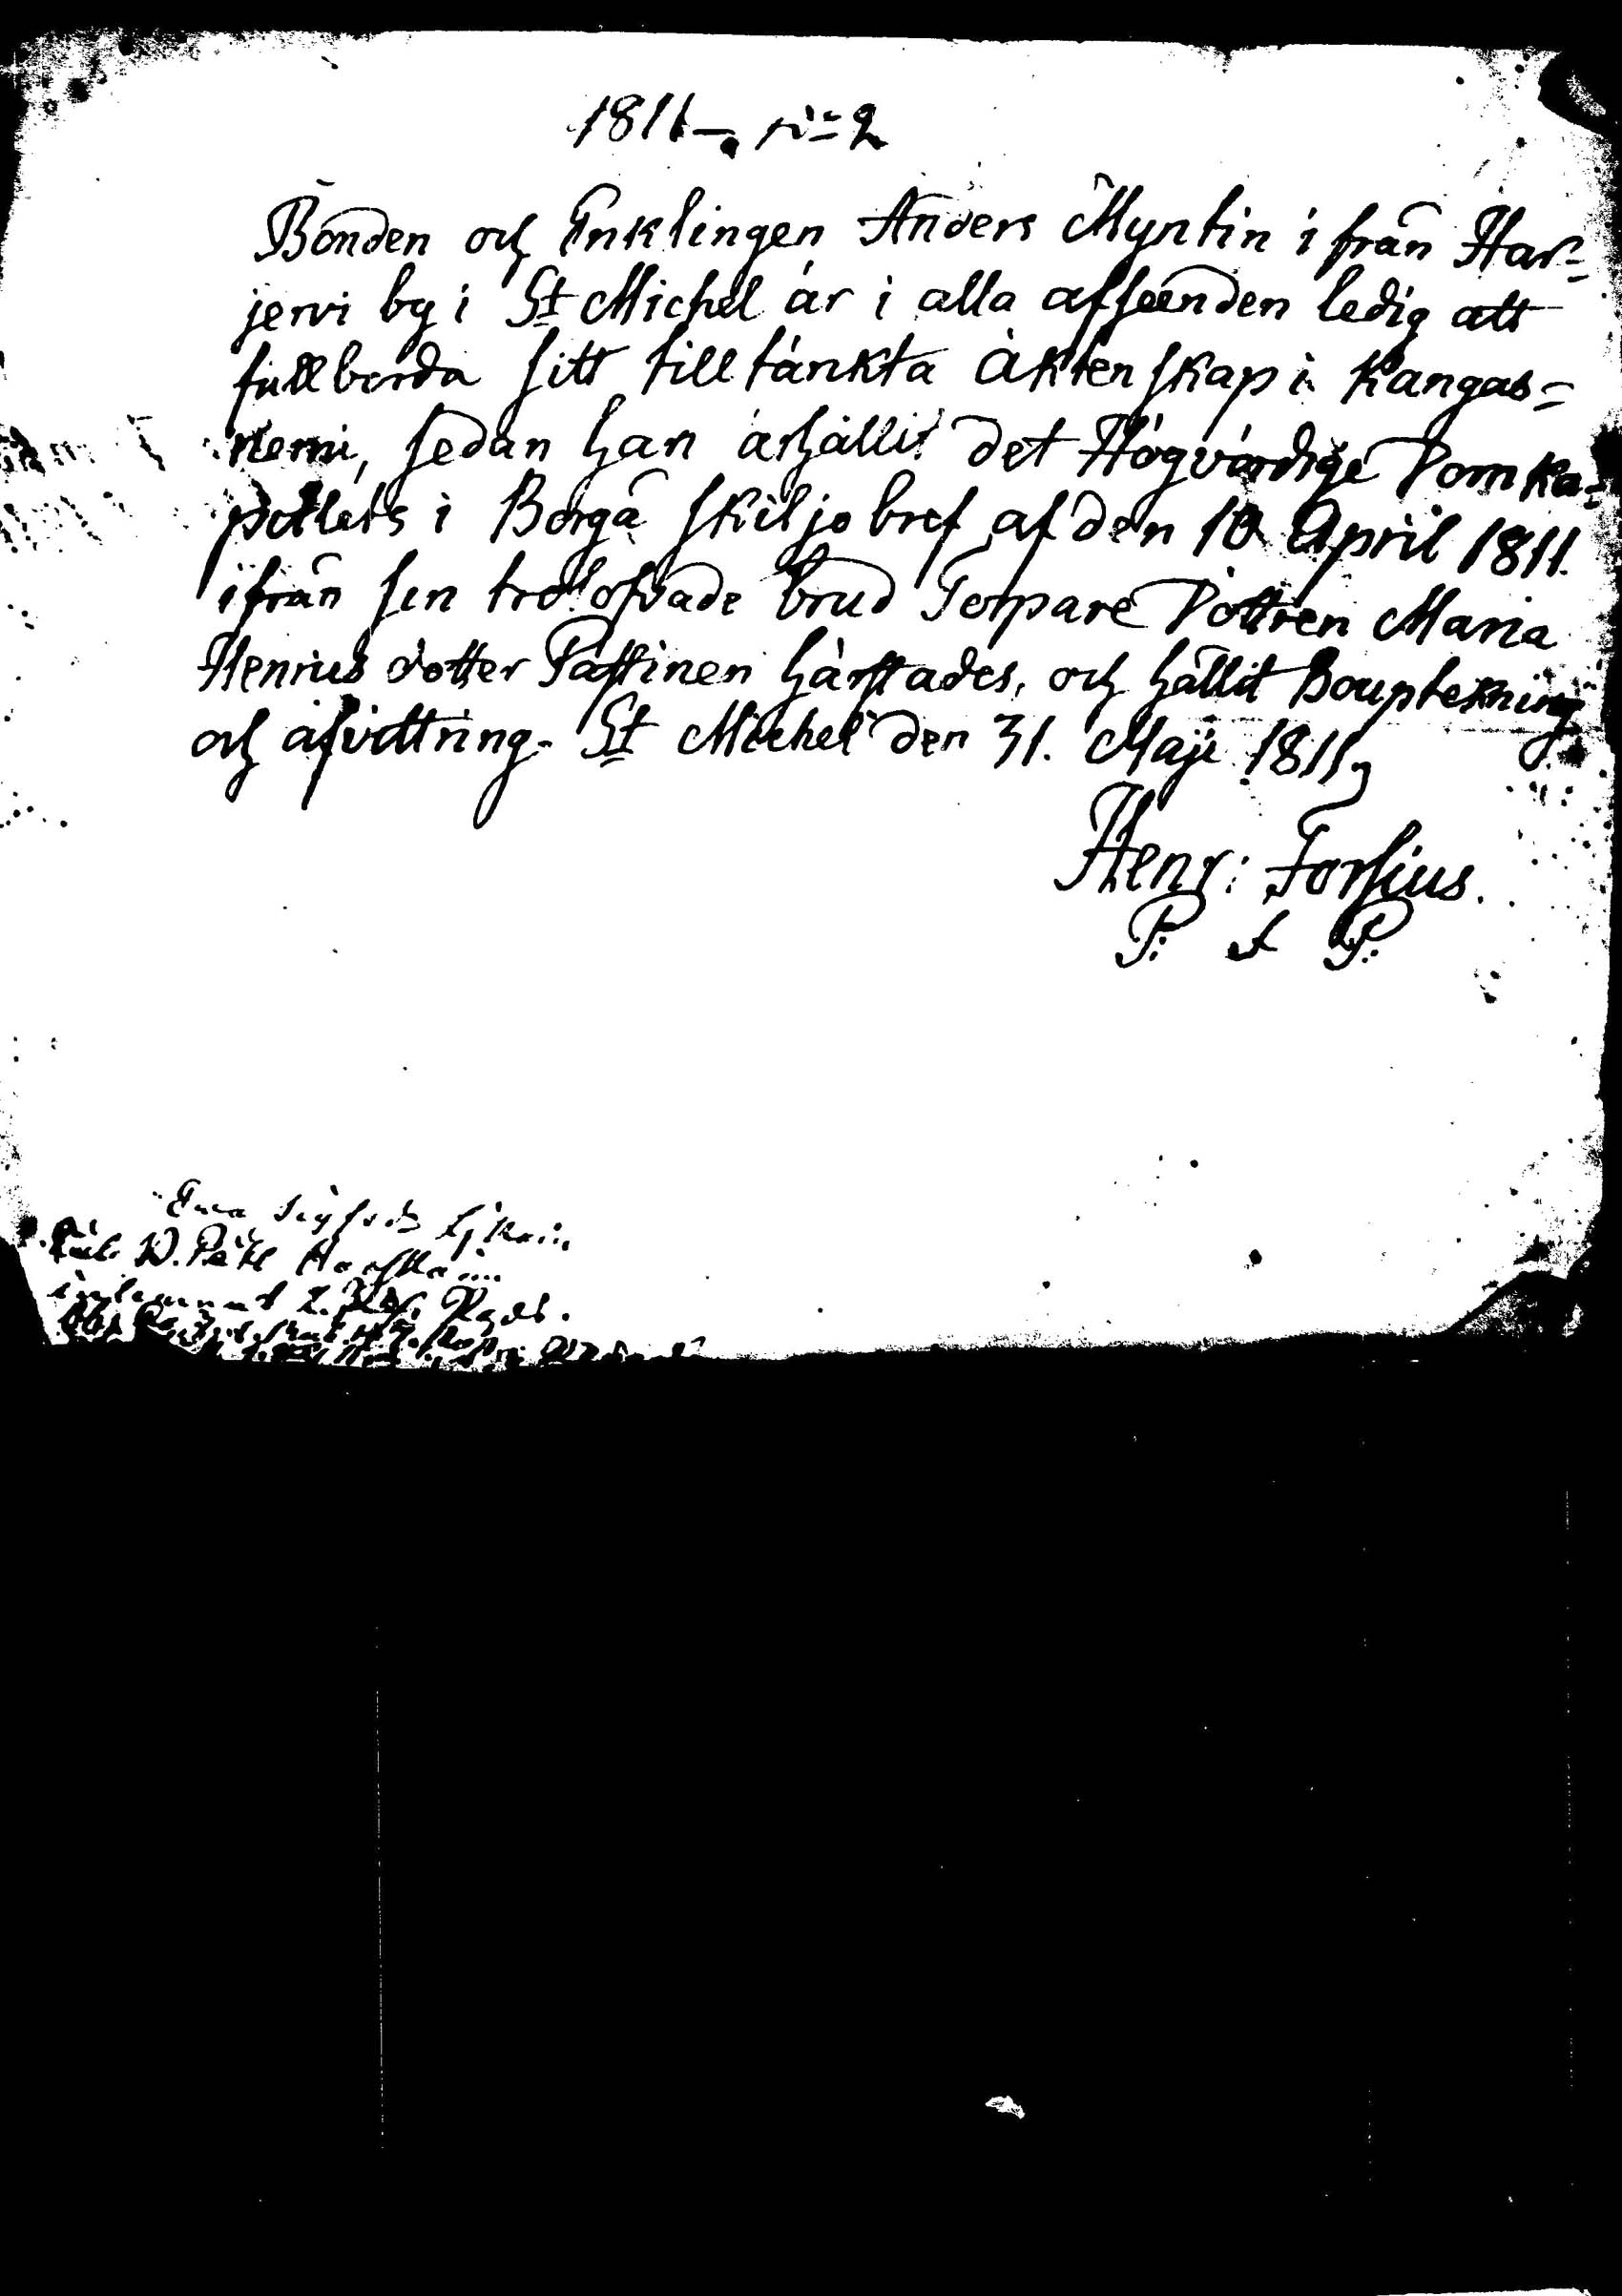 1811 — No 2
Bonden och Enklingen Anders Myntin i från Har=
jervi by i St Michel är i alla afseenden ledig att
fullborda sitt tilltänkta äktenskap i Kangas=
nemi, sedan han ärhållit det Högvärdige Domka=
pitlets i Borgå skiljobref af den 10 April 1811.
ifrån sin trolofvade brud Torpare Dottren Maria
Henrics dotter Pastinen härstades, och hållit Boupteckning
och afvittring. St Michel den 31. Maji 1811,
Henr: Forsius.
P: A P: